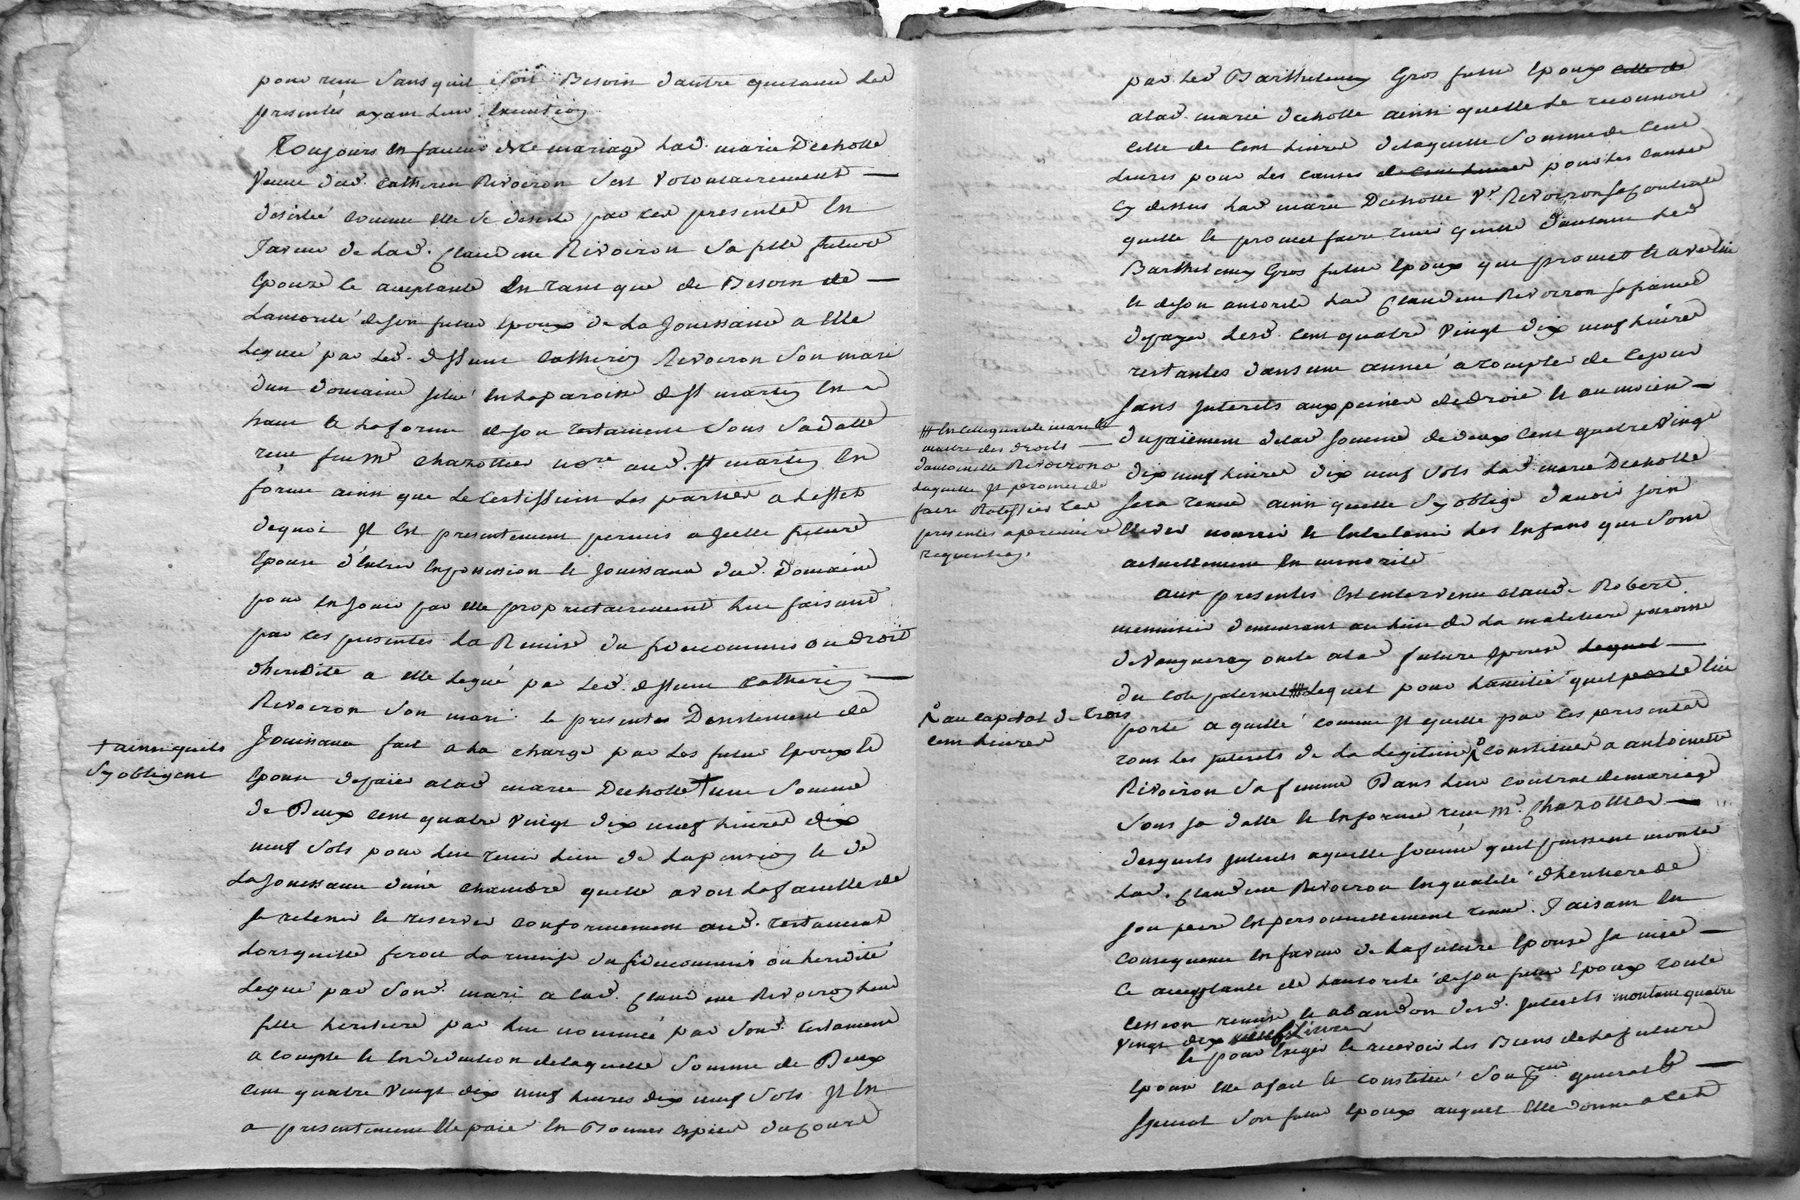 pour rem sans quil soit Besoin dautre quitance les
presentes ayant leur Execution
Toujours En faveur dudt mariage lad. marie Decholle
Veuve dud. Catherin Rivoiron sest volontairement
desistée comme elle se desiste par ces presentes En
faveur de lad. Claudine Rivoiron sa fille future
Epouse le acceptante En tant que de Besoin de
lautorité de son futur Epoux de la Jouissance a Elle
leguée par led. deffunt Catherin Rivoiron son mari
dun domaine situé En la paroisse de st martin En
haut et la forme de son testament sous sa datte
recu feu me Chazottier nore aud. st martin En
forme ainsi que le Certiffient les parties a leffet
dequoi Il Est presentement permis a Jcelle future
Epouse d'Entrer En possession et Jouissance dud. Domaine
pour En Jouir par elle proprietairement lui faisant
par ces presentes la Remise du fideicommis ou droit
dheridité a elle legué par led. deffunt Catherin
Rivoiron son mari le presentes Desistement de
Jouissance fait a la charge par les futur Epoux et
Epouse de païer a lad marie Decholle + une somme
+ ainsi quils
sy obligent
de Deux cent quatre vingt dix neuf livres dix
neuf sols pour lui tenir lieu de la pension et de
la Jouissance dune chambre quelle avoit la faculté de
se retenir et reserver conformement aud. testament
lorsquelle feroit la remise du fideicommis ou heridité
legué par sond. mari a lad. Claudine Rivoiron leur
fille heritiere par lui nommée par sond. testament
a compte et En deduction de laquelle somme de Deux
cent quatre vingt dix neuf livres dix neuf sols Il En
a presentement Eté païé En Bonnes Especes du cours
par led Barthelemy Gros futur Epoux celle de
alad. marie Decholle ainsi quelle le reconnoit
celle de Cent livres de laquelle somme de Cent
livres pour les causes de cent livres pour les causes
cy dessus lad marie Decholle Ve Rivoiron se contente
quelle le promet faire tenir quitte dautant led
Barthelemy Gros futur Epoux que promet et avec lui
et de son autorité lad Claudine Rivoiron sa fiancée
de payer lesd. cent quatre vingt dix neuf livres
restantes dans une année a compter de ce jour
sans Interets aux peines de droit et au moien
du païement de lad somme de deux cent quatre vingt
dix neuf livres dix neuf sols lad. marie Decholle
sera tenue ainsi quelle sy oblige davoir soin
Elever nourrir et Entretenir les Enfans que sont
actuellement En minorité
aux presentes Est intervenu Claude Robert
menuisier demeurant au lieu de la maletiere paroisse
de Vaugneray oncle alad future Epouse Lequel
du coté paternel # Lequel pour Lamitié quil porte lui
# En celle qualité mari et
maitre des droits
dantoinette Rivoiron a
laquelle Il promet de
faire Ratiffier les
presentes a premiere
requisition.
porte a quitté comme Il quitte par ces presentes
tous les Interets de la legitime constituée a antoinette
au capital de trois
cent livres
Rivoiron sa femme Dans leur contrat de mariage
sous sa datte et En forme recu me. Chazottier
desquels Interets a quelle somme quil puissent monter
lad. Claudine Rivoiron En qualité dheritiere de
son pere Est personnellement tenue. Faisant En
consequence En faveur de la future Epouse sa niece
Ce acceptante de lautorité de son futur Epoux toute
cession remise et abandon desd. Interets montant quatre
vingt dix neuf Livres
et pour Exiger et recevoir les Biens de la future
Epouse elle a fait et constitué son preur general et
special son futur Epoux auquel Elle donne a cet